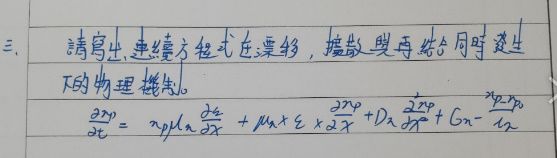 三、請寫出連續方程式在漂移,擴散與再結合同時發生
下的物理機制。
∂np/∂t = npμn ∂ε/∂x + μn × ε × ∂np/∂x + Dn ∂²np/∂x² + Gn - (np-npo)/τn